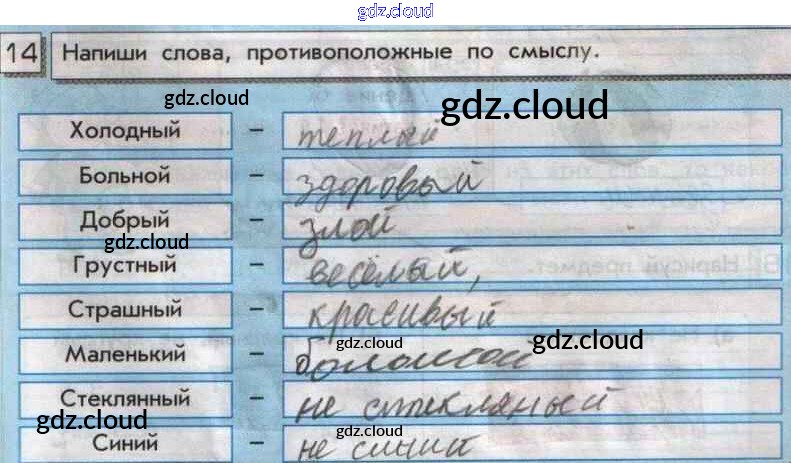 gdz.cloud
14 Напиши слова, противоположные по смыслу.
gdz.cloud gdz.cloud
Холодный – теплый
Больной – здоровый
Добрый – злой
gdz.cloud
Грустный – весёлый,
Страшный – красивый
gdz.cloud gdz.cloud
Маленький – большой
Стеклянный – не стекляный
gdz.cloud gdz.cloud
Синий – не синий